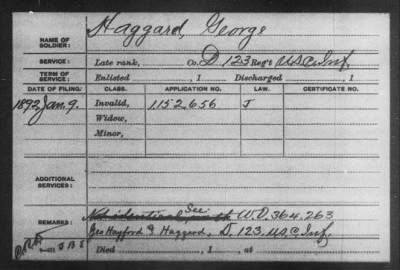 NAME OF SOLDIER: Haggard, George
SERVICE: Late rank, Co. D 123 Reg't U.S.C. Inf.
TERM OF SERVICE: Enlisted , 1 Discharged , 1
DATE OF FILING. CLASS. APPLICATION NO. LAW. CERTIFICATE NO.
1892, Jan. 9. Invalid, 1152,656 J
Widow,
Minor,
ADDITIONAL SERVICES:
REMARKS: Not identical with See W.O. 364,263
Geo Hayford Haggard, D. 123. U.S.C. Inf.
Died , 1 , at